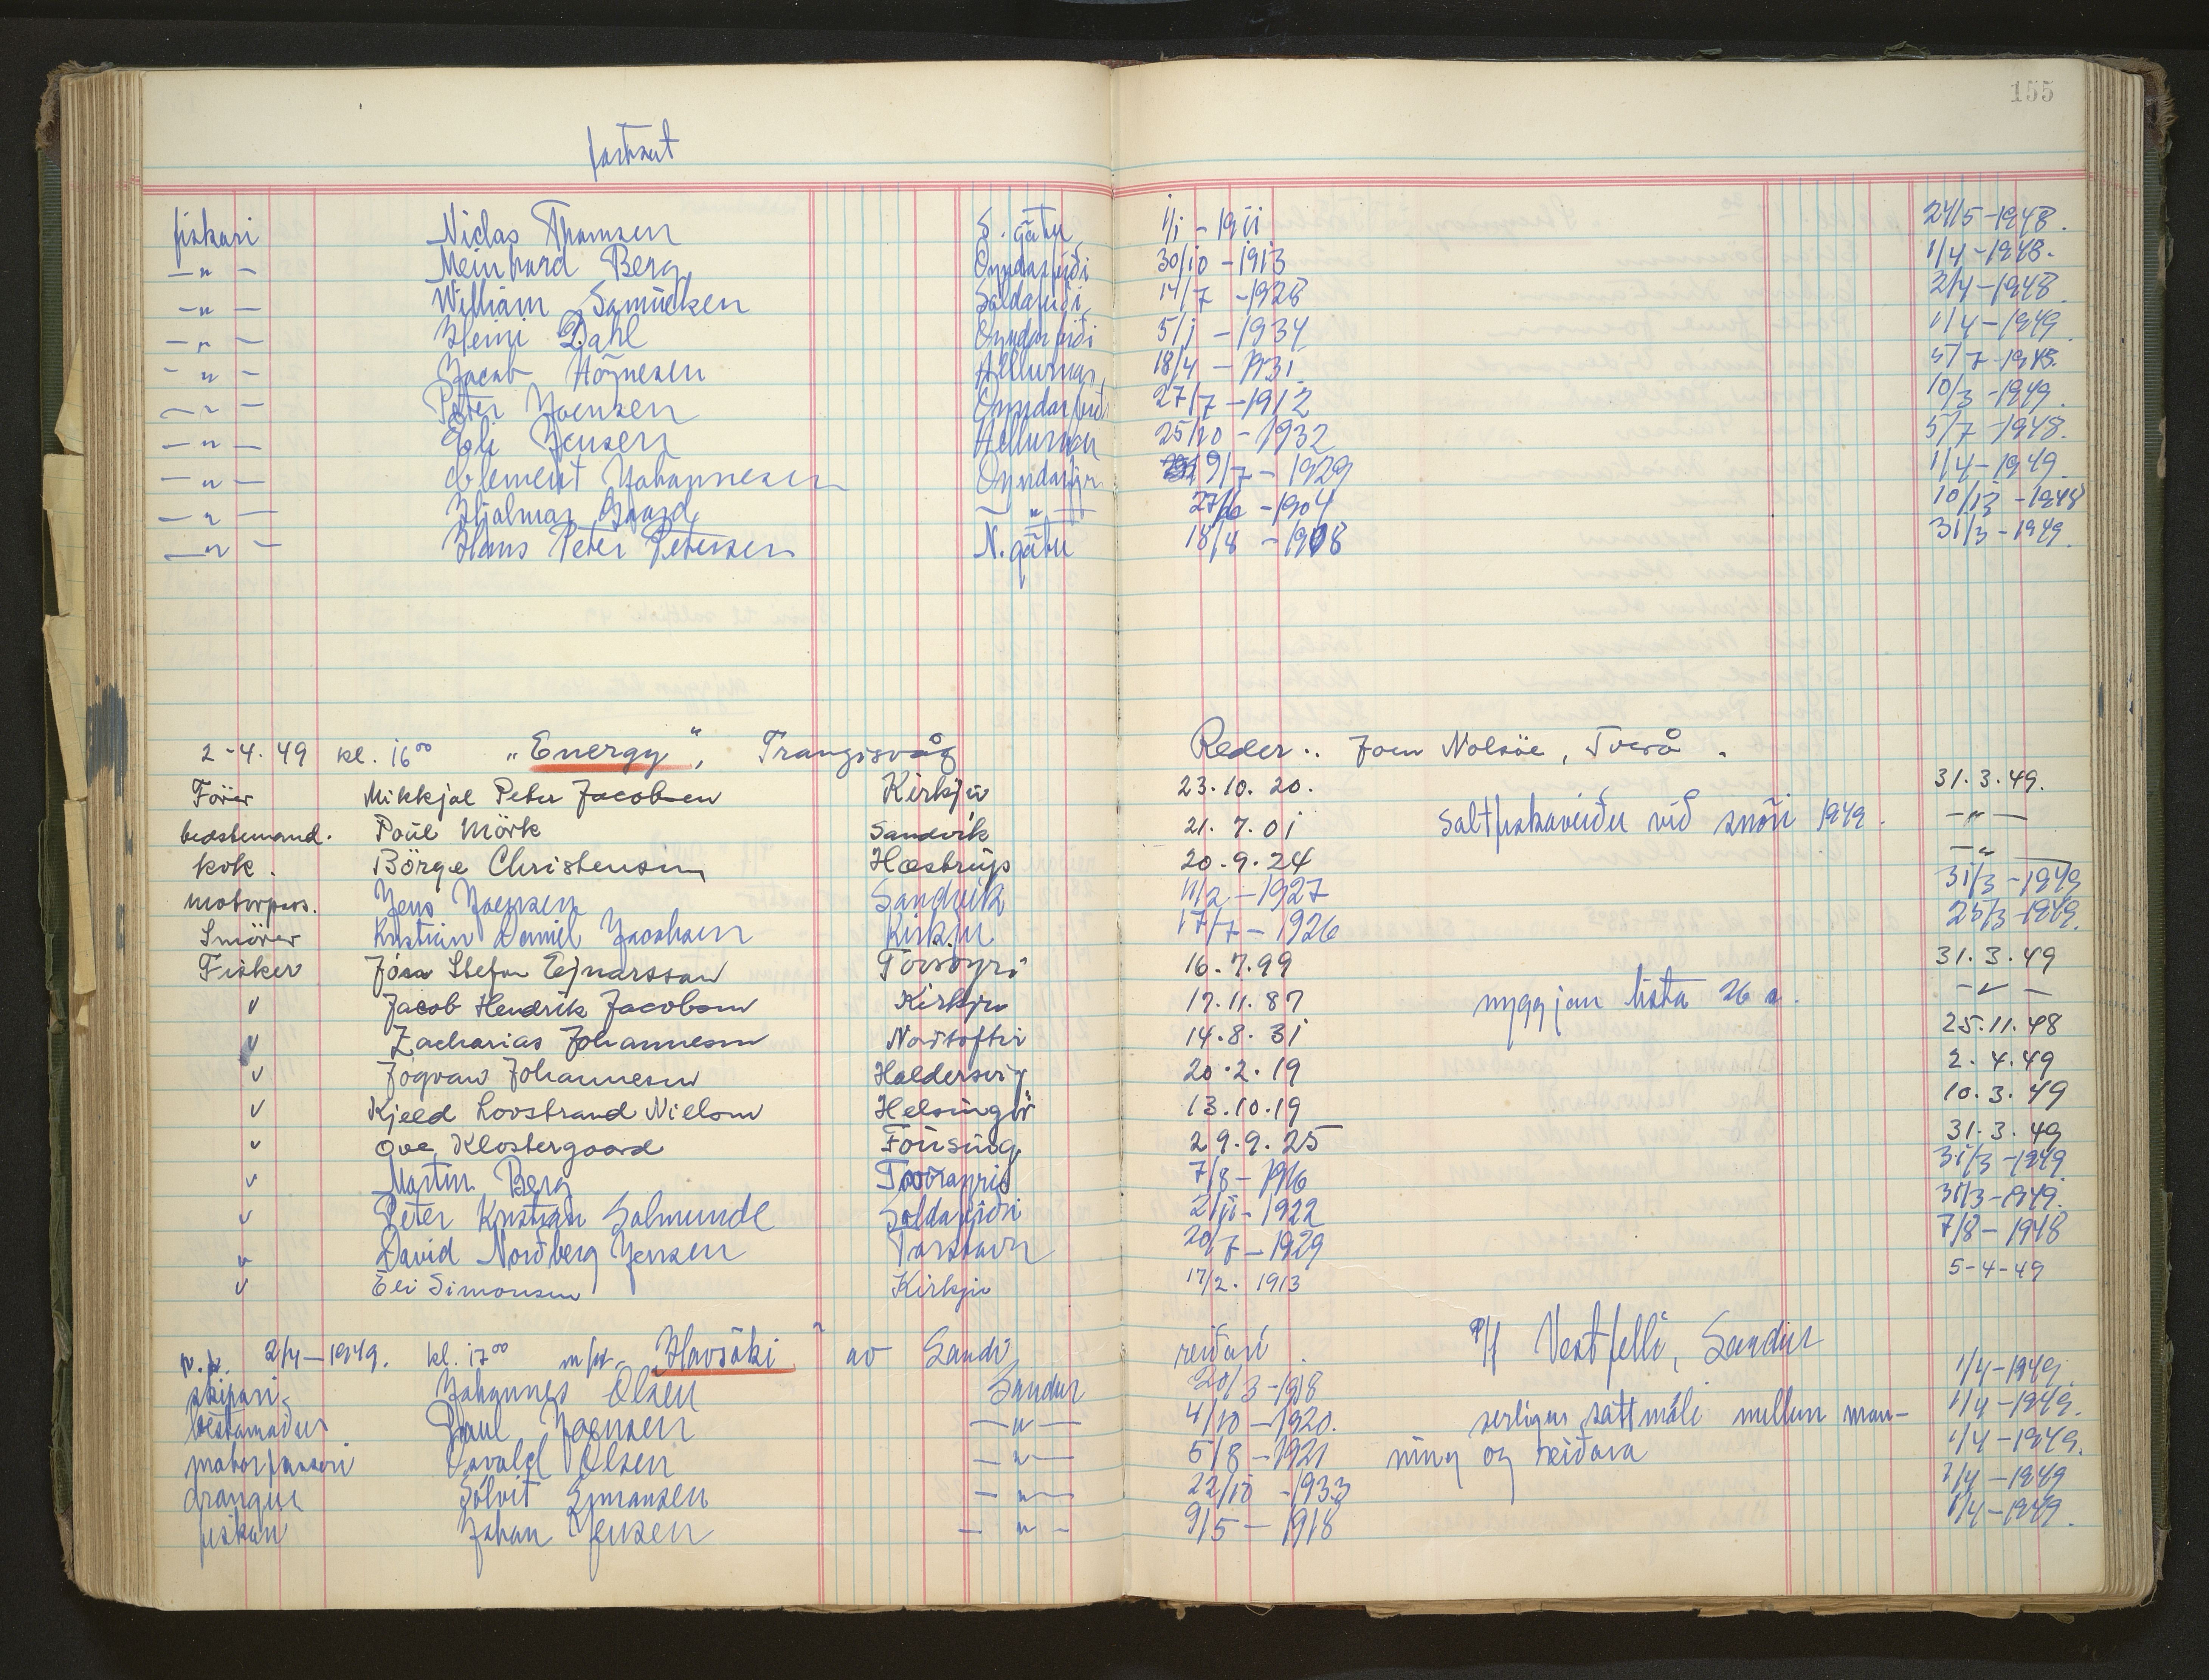 155
fortsat
fiskari Niclas Thomsen S. gøtu 1/1 - 1911 24/5 - 1948.
- " - Meinhard Berg Oyndarfirði 30/10 - 1913 1/4 - 1948.
- " - William Samuelsen Saldafirði 14/7 - 1928 2/4 - 1948.
- " - Heini Dahl Oyndarfirði 5/1 - 1934 1/4 - 1949.
- " - Jacob Högnesen Hellurnar 18/4 - 1931. 5/7 - 1948.
- " - Peter Joensen Oyndarfirði 27/7 - 1912 10/3 - 1949.
- " - Jensen Hellurnar 25/10 - 1932 5/7 - 1948.
- " - Clement Johannesen Oyndarfjr. 9/7 - 1929 1/4 - 1949.
- " - Hjalmar Gaard - " - 27/6 - 1904 10/12 - 1948
- " - Hans Peter Petersen N. gøtu 18/8 - 1908 31/3 - 1949.
2-4.49 kl. 16°° "Energy", Trangisvåg Reder: Joen Nolsöe, Tverå.
Förer Mikkjal Peter Jacobsen Kirkju 23.10.20. 31.3.49.
bedstemand. Poul Mörk Sandvik 21.7.01 saltfiskaveiðu við snöri 1949. - " -
kok. Börge Christensen Hæstrup 20.9.24 - " -
motorpas. Jens Joensen Sandvik 11/2 - 1927 31/3 - 1949
Smörer Kristian Daniel Jacobsen Kirkju 17/7 - 1926 25/3 - 1949.
Fisker Jósa Stefan Ejnarsson 16.7.99 31.3.49
" Jacob Hendrik Jacobsen Kirkju 17.11.87 nyggjan lista 26 a. - " -
" Zacharias Johannesen Nordtoftir 14.8.31 25.11.48
" Jogvan Johannesen Haldersvig 20.2.19 2.4.49
" Kjeld Lovstrand Nielsen Helsingör 13.10.19 10.3.49
" Ove Klostergaard 29.9.25 31.3.49
" Martin Berg 7/8 - 1916 31/3 - 1949.
" Peter Kristian Salmunde Saldafirði 2/11 - 1922 31/3 - 1949.
" David Nordberg Jensen Torshavn 20/7 - 1929 7/8 - 1948
" Eli Simonsen Kirkju 17/2. 1913 5-4-49
2/4 - 1949. kl. 17°° m/sk. "Havsóki" av Sandi reiðari P/f Vestfelli, Sandur
skipari Johannes Olsen Sandur 20/3 - 1918 1/4 - 1949.
bestamaður Poul Joensen - " - 4/10 - 1920. serligur sattmáli millum man- 1/4 - 1949.
motorpassari Osvald Olsen - " - 5/8 - 1921 ning og reiðara 1/4 - 1949.
drongur Sölvit Simonsen - " - 22/10 - 1933 1/4 - 1949
fiskari Johan Jensen - " - 9/5 - 1918 1/4 - 1949.